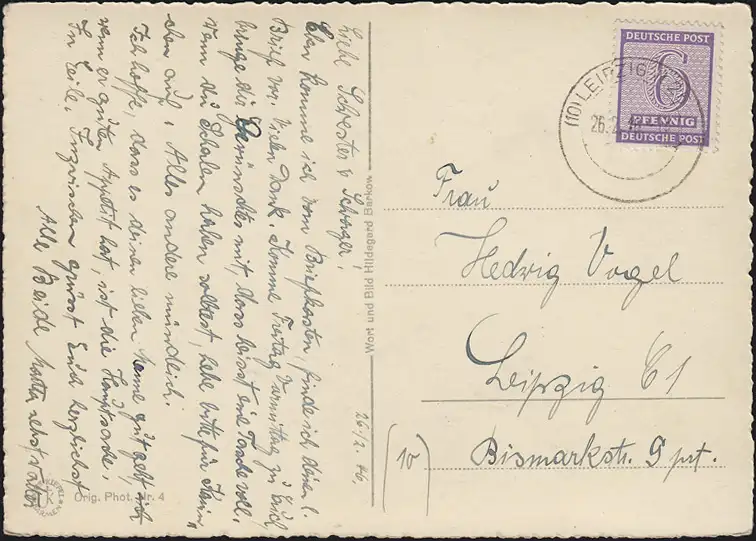 Liebe Schwester & Schwager!
Eben komme ich vom Briefkasten, finde ich deinen l.
Brief vor. Vielen Dank. Komme Freitag Vormittag zu Euch
bringe das Gewünschte mit, das heisst eine Tasche voll.
Wenn du Schalen haben solltest, hebe bitte für
chen auf. Alles andere mündlich.
Ich hoffe, dass es deinen lieben Manne gut geht,
wenn er guten Appetit hat, ist die Hauptsache.
In Eile. Inzwischen grüsst Euch herzlichst
Alle Beide
26/2. 46.
Wort und Bild Hildegard Barkow
Orig. Phot. Nr. 4
DEUTSCHE POST
6
PFENNIG
DEUTSCHE POST
(10) LEIPZIG
26.2.
Frau
Hedwig Vogel
Leipzig C1
(10)
Bismarkstr. 9 prt.